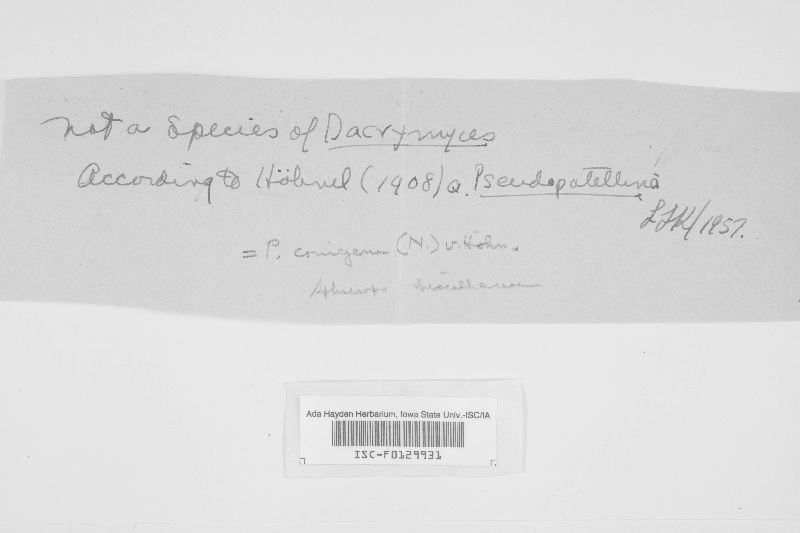 Not a Species of Dacrymyces
According to Höhnel (1908) a Pseudopatellina
LLK/1957.
= P. conigena (N.) v. Höhn.
Ada Hayden Herbarium, Iowa State Univ.-ISC/IA
ISC-F0129931